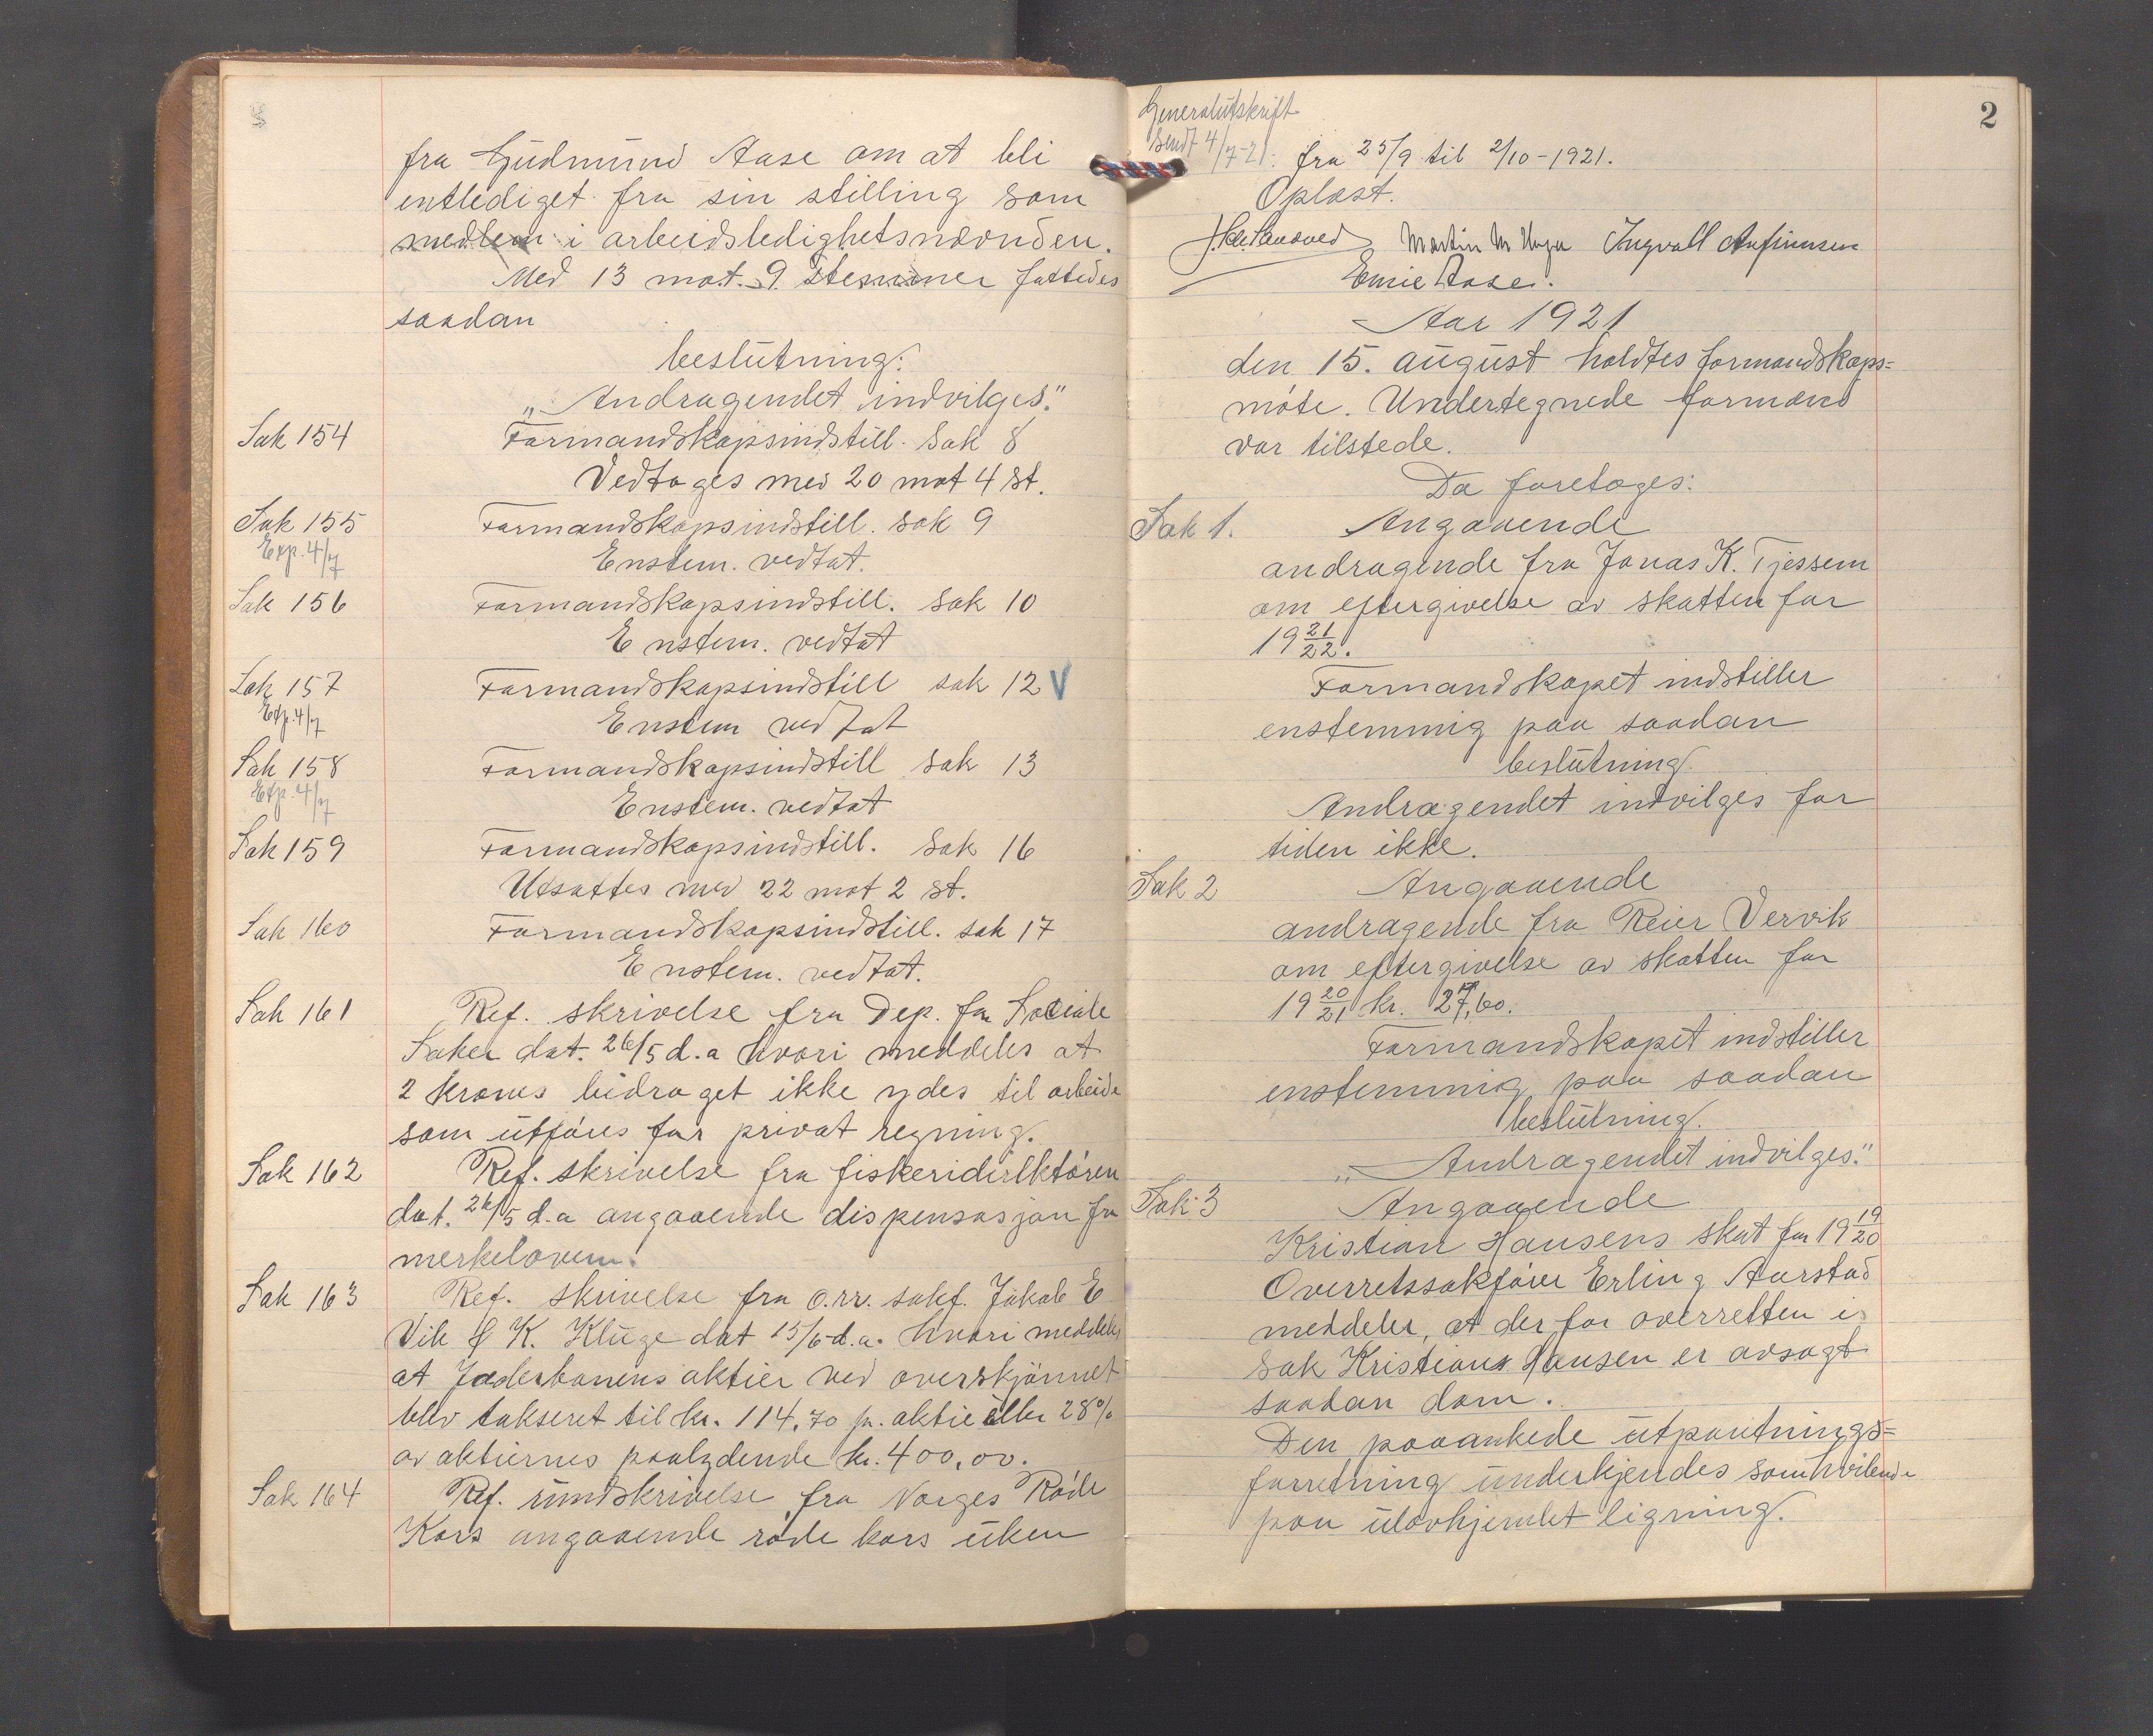 fra Gudmund Aase om at bli
entlediget fra sin stilling som
medlem i arbeidsledighetsnævnden.
Med 13 mot 9 stemmer fattedes
saadan
beslutning:
"Andragendet indvilges."
Sak 154 Formandskapsindstill. sak 8
Vedtages med 20 mot 4 st.
Sak 155 Formandskapsindstill. sak 9
Exp. 4/7 Enstem. vedtat.
Sak 156 Formandskapsindstill. sak 10
Enstem. vedtat
Sak 157 Formandskapsindstill sak 12 V
Exp. 4/7 Enstem vedtat
Sak 158 Formandskapsindstill sak 13
Exp. 4/7 Enstem. vedtat
Sak 159 Formandskapsindstill. sak 16
Utsattes med 22 mot 2 st.
Sak 160 Formandskapsindstill. sak 17
Enstem. vedtat.
Sak 161 Ref. skrivelse fra Dep. for Sociale
Saker dat. 26/5 d.a hvori meddeles at
2 krones bidraget ikke ydes til arbeide
som utføres for privat regning.
Sak 162 Ref. skrivelse fra fiskeridirektøren
dat. 26/5 d.a angaaende dispensasjon fra
merkeloven.
Sak 163 Ref. skrivelse fra o.rr. sakf. Jakob E
Vik & K. Kluge dat 15/6 d.a. hvori meddeles
at Jæderbanens aktier ved overskjønnet
blev takseret til kr. 114,70 pr. aktie eller 28%
av aktiernes paalydende kr. 400,00.
Sak 164 Ref. rundskrivelse fra Norges Røde
Kors angaaende røde kors uken
2
Generalutskrift
sendt 4/7-21. fra 25/9 til 2/10-1921.
Oplæst.
Martin M Unga Ingvall Anfinnsen
Emie Aase.
Aar 1921
den 15. august holdtes formandskaps=
møte. Undertegnede formænd
var tilstede.
Da foretoges:
Sak 1. Angaaende
andragende fra Jonas K. Tjessem
om eftergivelse av skatten for
19 21/22.
Formandskapet indstiller
enstemmig paa saadan
beslutning.
Andragendet indvilges for
tiden ikke.
Sak 2 Angaaende
andragende fra Reier Vervik
om eftergivelse av skatten for
19 20/21 kr. 27,60.
Formandskapet indstiller
enstemmig paa saadan
beslutning.
"Andragendet indvilges."
Sak 3 Angaaende
Kristian Hansens skat for 19 19/20
Overretssakfører Erling Aarstad
meddeler, at der for overretten i
sak Kristians Hansen er avsagt
saadan dom.
Den paaankede utpantnings=
forretning underkjendes som hvilende
paa ulovhjemlet ligning.